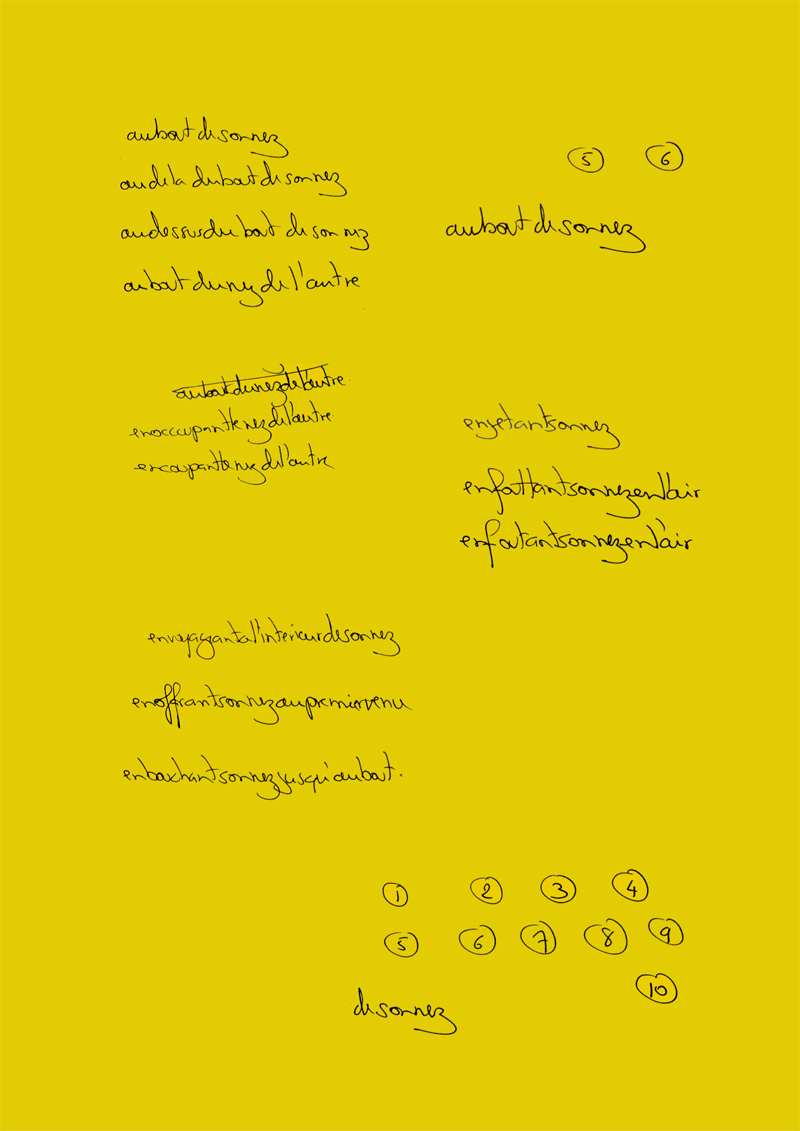 auboutdesonnez
audeladuboutdesonnez
audessusduboutdesonnez
auboutdunezdel'autre
5 6
auboutdesonnez
auboutdunezdel'autre
enoccupantlenezdel'autre
encoupantlenezdel'autre
enjetantsonnez
enfoutantsonnezenl'air
enfoutantsonnezenl'air
envoyageantal'interieurdesonnez
enoffrantsonnezaupremiervenu
enbouchantsonnezjusqu'aubout.
1 2 3 4
5 6 7 8 9
10
desonnez